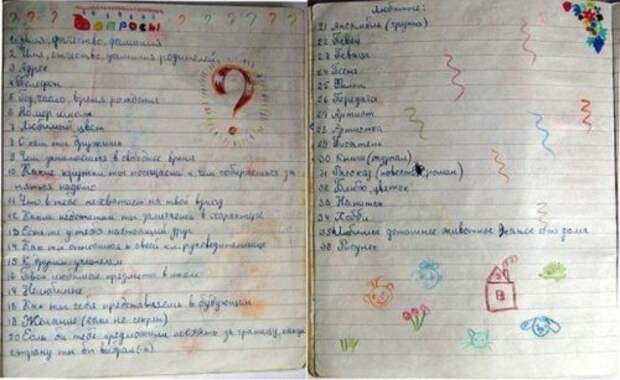 Вопросы
1 Имя, отчество, фамилия
2 Имя, отчество, фамилия родителей
3 Адрес
4 Телефон
5 Год, число, время рождения
6 Номер школы
7 Любимый цвет
8 С кем ты дружишь
9 Чем занимаешься в свободное время
10 Какие кружки ты посещаешь и чем собираешься за
няться
11 Что в тебе не хватает на твой взгляд
12 Какие недостатки ты замечаешь в характере
13 Есть ли у тебя настоящий друг
14 Как ты относишься к своей кл. руководительнице
15 К другим учителям
16 Твои любимые предметы в школе
17 Нелюбимые
18 Как ты себя представляешь в будущем
19 Желание (если не секрет)
20 Если бы тебе предложили поехать за границу, какую
страну ты бы выбрал(-а)
Любимые:
21 Ансамбль (группа)
22 Певец
23 Певица
24 Песня
25 Фильм
26 Передача
27 Артист
28 Артистка
29 Писатель
30 Книга (журнал)
31 Рассказ (повесть, роман)
32 Блюдо, цветок
33 Напиток
34 Хобби
35 Любимое домашнее животное
36 Рисунок